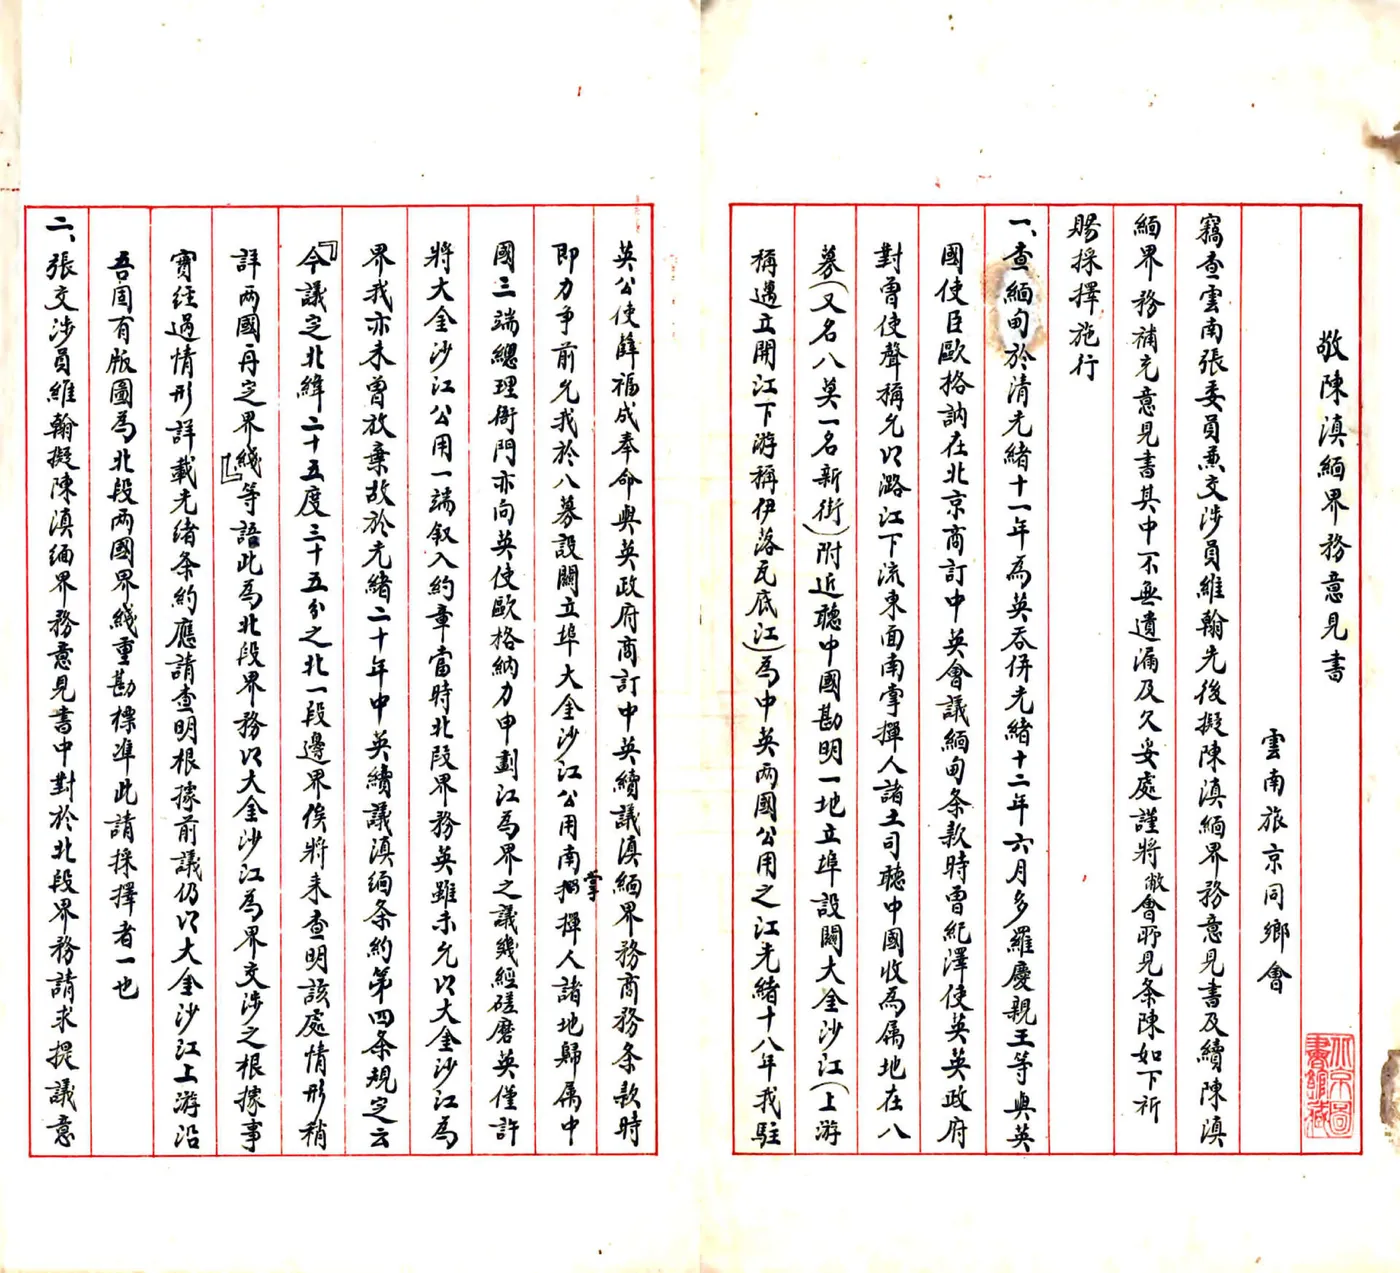 敬陳滇緬界務意見書
雲南旅京同鄉會
竊查雲南張委員兼交涉員維翰先後擬陳滇緬界務意見書及續陳滇
緬界務補充意見書其中不無遺漏及欠妥處謹將敝會所見条陳如下祈
賜採擇施行
一、查緬甸於清光緒十一年為英吞併光緒十二年六月多羅慶親王等與英
國使臣歐格訥在北京商訂中英會議緬甸条款時曾紀澤使英英政府
對曾使聲稱允以潞江下流東面南掌撣人諸土司聽中國收為属地在八
募（又名八莫一名新街）附近聽中國勘明一地立埠設關大金沙江（上游
稱邁立開江下游稱伊落瓦底江）為中英两國公用之江光緒十八年我駐
英公使薛福成奉命與英政府商訂中英續議滇緬界務商務条款時
即力争前允我於八募設關立埠大金沙江公用南掌撣人諸地歸属中
國三端總理衙門亦向英使歐格納力申劃江為界之議幾經磋磨英僅許
將大金沙江公用一端叙入約章當時北段界務英雖未允以大金沙江為
界我亦未曾放棄故於光緒二十年中英續議滇緬条約第四条規定云
『今議定北緯二十五度三十五分之北一段邊界俟將来查明該處情形稍
詳两國再定界綫』等語此為北段界務以大金沙江為界交涉之根據事
實经過情形詳載光緒条約應請查明根據前議仍以大金沙江上游沿
吾固有版圖為北段两國界綫重勘標準此請採擇者一也
二、張交涉員維翰擬陳滇緬界務意見書中對於北段界務請求提議意
北京圖
書館藏